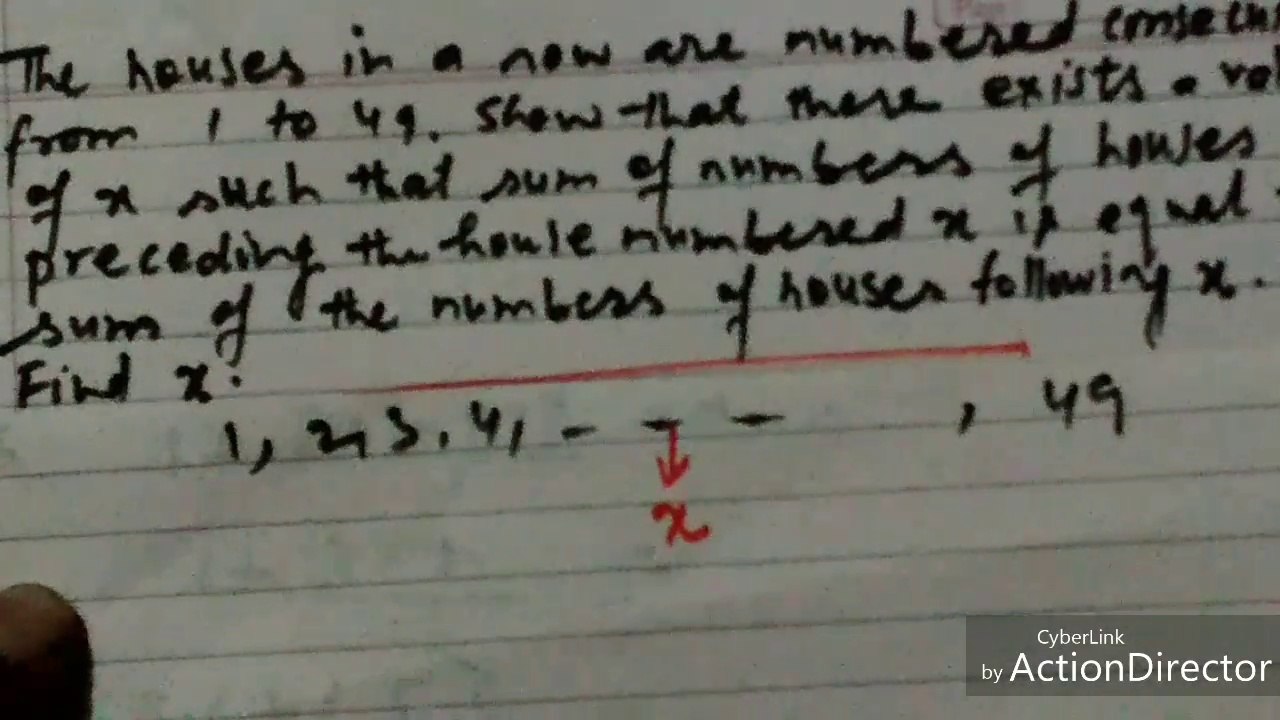 The houses in a now are numbered
from 1 to 49. Show that there exists a
of x such that sum of numbers of houses
preceding the house numbered x is equal
sum of the numbers of houses following x.
Find x.
1, 2, 3, 4, - - - , 49
x
CyberLink
by ActionDirector